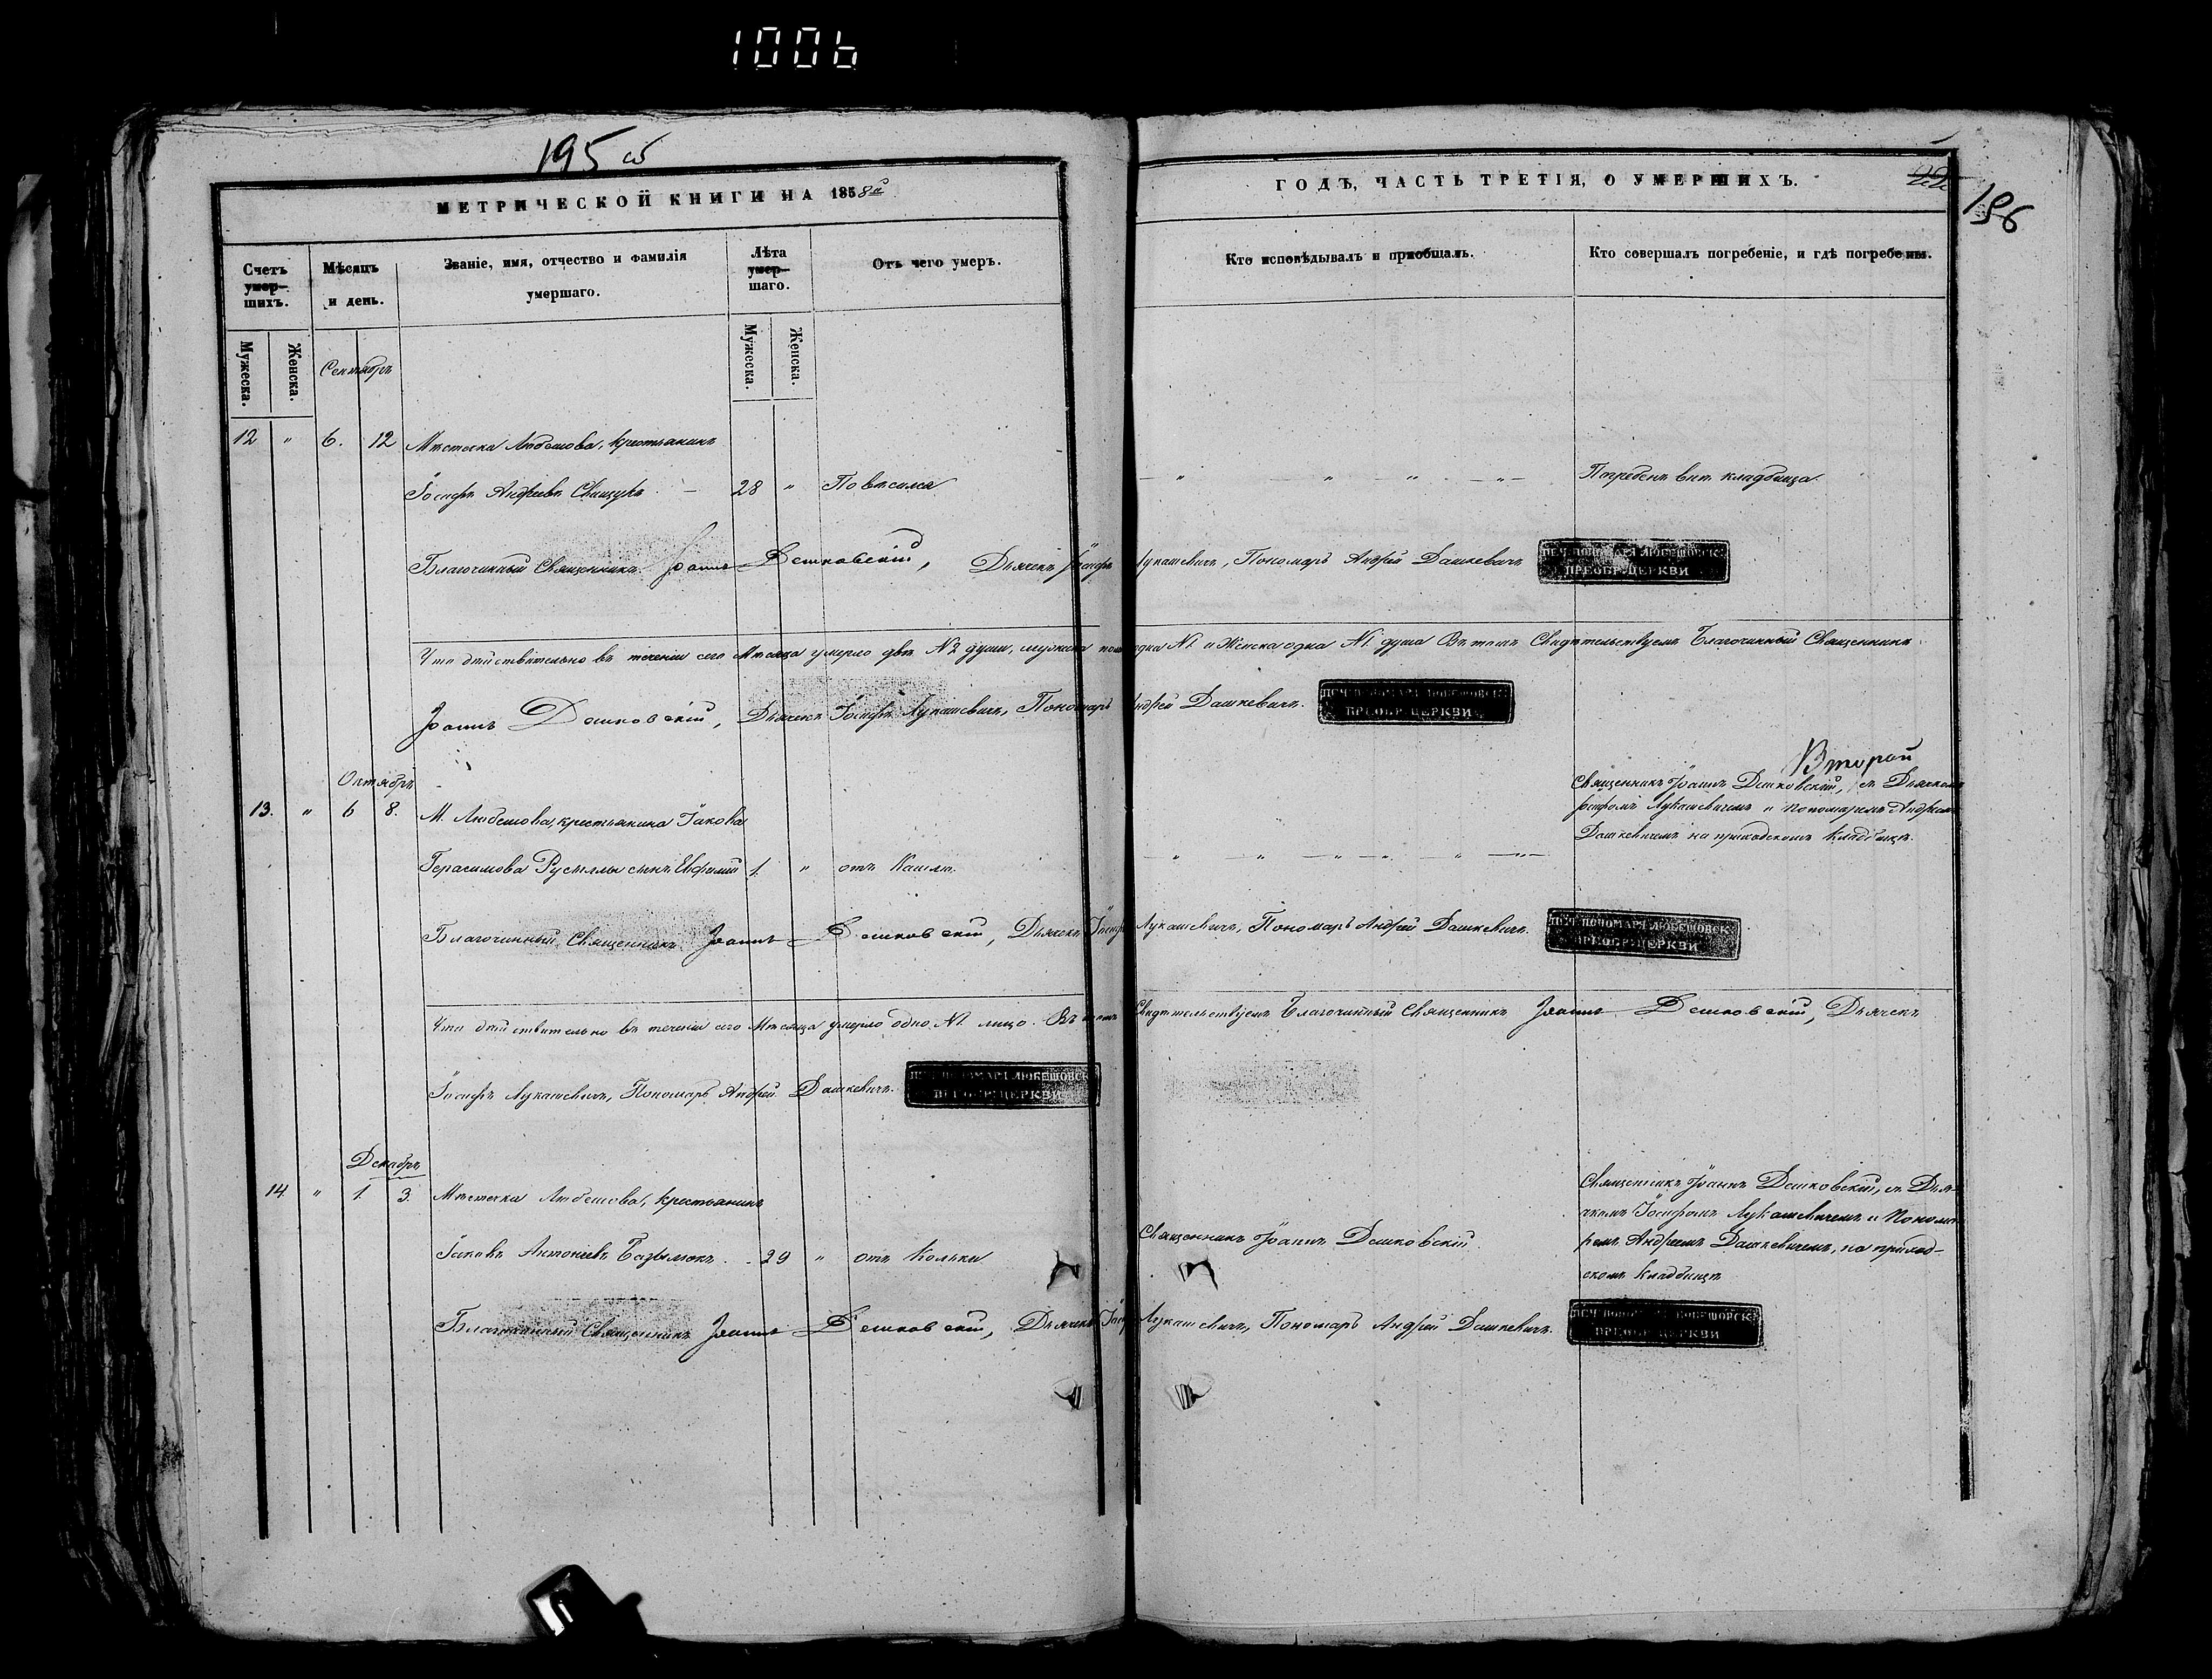 1006
195 об
МЕТРИЧЕСКОЙ КНИГИ НА 1858й
Счетъ умер-шихъ.
Мѣсяцъ и день.
Званіе, имя, отчество и фамилія умершаго.
Лѣта умер-шаго.
Отъ чего умеръ.
Мужеска.
Женска.
Мужеска.
Женска.
Сентябрь
12 " 6. 12 Мѣстечка Любешова, крестьянинъ
Іосифъ Андреевъ Свищукъ 28 " Повѣсился
Благочинный Священникъ Іоаннъ Дешковскій, Дьячекъ Іосифъ
Что дѣйствительно въ теченіи сего Мѣсяца умерло двѣ №2 души, мужеска пола
Іоаннъ Дешковскій, Дьячекъ Іосифъ Лукашевичъ, Пономарь
Октябрь
13. " 6 8. М. Любешова, крестьянина Іакова
Герасимова сынъ Евфимій 1. " отъ Кашлю.
Благочинный Священникъ Іоаннъ Дешковскій, Дьячекъ Іосифъ
Что дѣйствительно въ теченіи сего Мѣсяца умерло одно №1. лицо. Въ томъ
Іосифъ Лукашевичъ, Пономарь Андрей Дашкевичъ.
ПЕЧ. ПОНОМАРЯ ЛЮБЕШОВСК:
ПРЕОБР: ЦЕРКВИ
Декабрь
14. " 1. 3. Мѣстечка Любешова, крестьянинъ
Іаковъ Антоніевъ Базылюкъ 29 " отъ Кольки
Благочинный Священникъ Іоаннъ Дешковскій, Дьячекъ Іосифъ
ГОДЪ, ЧАСТЬ ТРЕТІЯ, О УМЕРШИХЪ.
22
196
Кто исповѣдывалъ и пріобщалъ.
Кто совершалъ погребеніе, и гдѣ погребены.
" " " " Погребенъ внѣ кладбища.
Лукашевичъ, Пономарь Андрей Дашкевичъ
ПЕЧ. ПОНОМАРЯ ЛЮБЕШОВСК:
ПРЕОБР: ЦЕРКВИ
одна №1. и Женска одна №1. душа Въ томъ Свидѣтельствуемъ Благочинный Священникъ
Андрей Дашкевичъ.
ПЕЧ. ПОНОМАРЯ ЛЮБЕШОВСК:
ПРЕОБР: ЦЕРКВИ
Второй
Священникъ Іоаннъ Дешковскій, съ Дьячкомъ
Іосифомъ Лукашевичемъ и Пономаремъ Андреемъ
Дашкевичемъ на приходскомъ кладбищѣ.
" " " " " "
Лукашевичъ, Пономарь Андрей Дашкевичъ.
ПЕЧ. ПОНОМАРЯ ЛЮБЕШОВСК:
ПРЕОБР: ЦЕРКВИ
Свидѣтельствуемъ Благочинный Священникъ Іоаннъ Дешковскій, Дьячекъ
Священникъ Іоаннъ Дешковскій
Священникъ Іоаннъ Дешковскій, съ Дья-
чкомъ Іосифомъ Лукашевичемъ и Понома-
ремъ Андреемъ Дашкевичемъ, на приход-
скомъ кладбищѣ
Лукашевичъ, Пономарь Андрей Дашкевичъ.
ПЕЧ. ПОНОМАРЯ ЛЮБЕШОВСК:
ПРЕОБР: ЦЕРКВИ